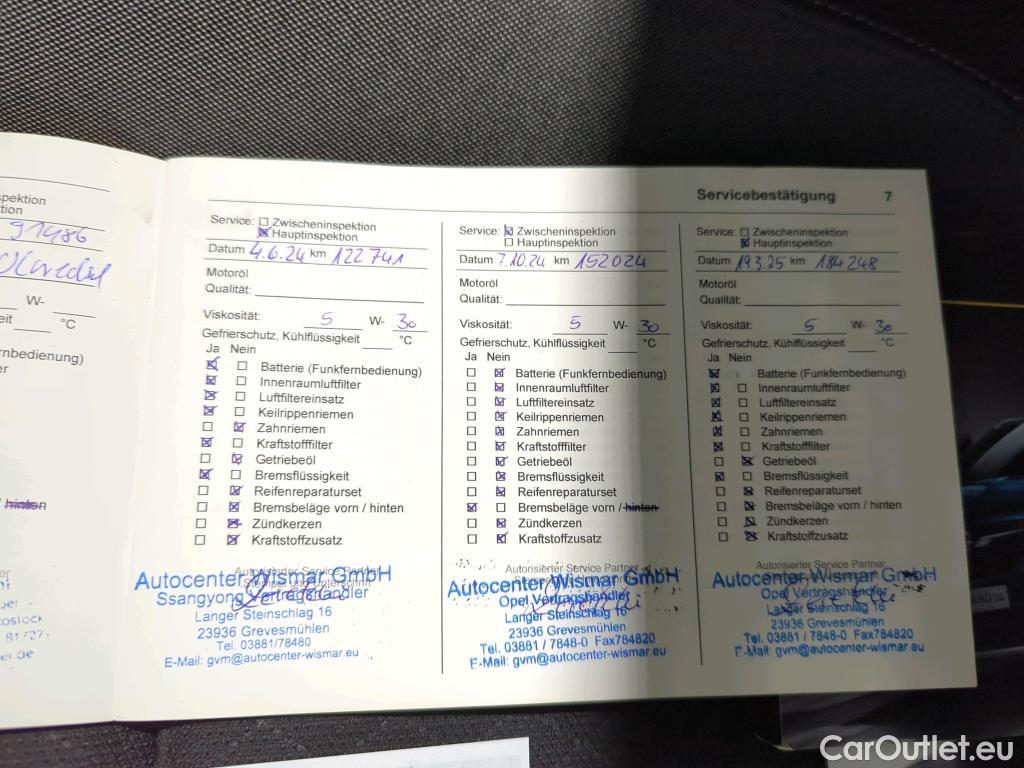 pektion
tion
91486
W-
eit °C
ernbedienung)
er
/ hinten
Servicebestätigung 7
Service: Zwischeninspektion
Hauptinspektion
Datum 4.6.24 km 122741
Motoröl
Qualität:
Viskosität: 5 W- 30
Gefrierschutz, Kühlflüssigkeit °C
Ja Nein
Batterie (Funkfernbedienung)
Innenraumluftfilter
Luftfiltereinsatz
Keilrippenriemen
Zahnriemen
Kraftstofffilter
Getriebeöl
Bremsflüssigkeit
Reifenreparaturset
Bremsbeläge vorn / hinten
Zündkerzen
Kraftstoffzusatz
Autorisierter Service Partner
Autocenter Wismar GmbH
Ssangyong Vertragshändler
Langer Steinschlag 16
23936 Grevesmühlen
Tel. 03881/78480
E-Mail: gvm@autocenter-wismar.eu
Service: Zwischeninspektion
Hauptinspektion
Datum 7.10.24 km 152024
Motoröl
Qualität:
Viskosität: 5 W- 30
Gefrierschutz, Kühlflüssigkeit °C
Ja Nein
Batterie (Funkfernbedienung)
Innenraumluftfilter
Luftfiltereinsatz
Keilrippenriemen
Zahnriemen
Kraftstofffilter
Getriebeöl
Bremsflüssigkeit
Reifenreparaturset
Bremsbeläge vorn / hinten
Zündkerzen
Kraftstoffzusatz
Autorisierter Service Partner
Autocenter Wismar GmbH
Opel Vertragshändler
Langer Steinschlag 16
23936 Grevesmühlen
Tel. 03881 / 7848-0 Fax784820
E-Mail: gvm@autocenter-wismar.eu
Service: Zwischeninspektion
Hauptinspektion
Datum 19.3.25 km 184248
Motoröl
Qualität:
Viskosität: 5 W- 30
Gefrierschutz, Kühlflüssigkeit °C
Ja Nein
Batterie (Funkfernbedienung)
Innenraumluftfilter
Luftfiltereinsatz
Keilrippenriemen
Zahnriemen
Kraftstofffilter
Getriebeöl
Bremsflüssigkeit
Reifenreparaturset
Bremsbeläge vorn / hinten
Zündkerzen
Kraftstoffzusatz
Autorisierter Service Partner
Autocenter Wismar GmbH
Opel Vertragshändler
Langer Steinschlag 16
23936 Grevesmühlen
Tel. 03881 / 7848-0 Fax784820
E-Mail: gvm@autocenter-wismar.eu
CarOutlet.eu